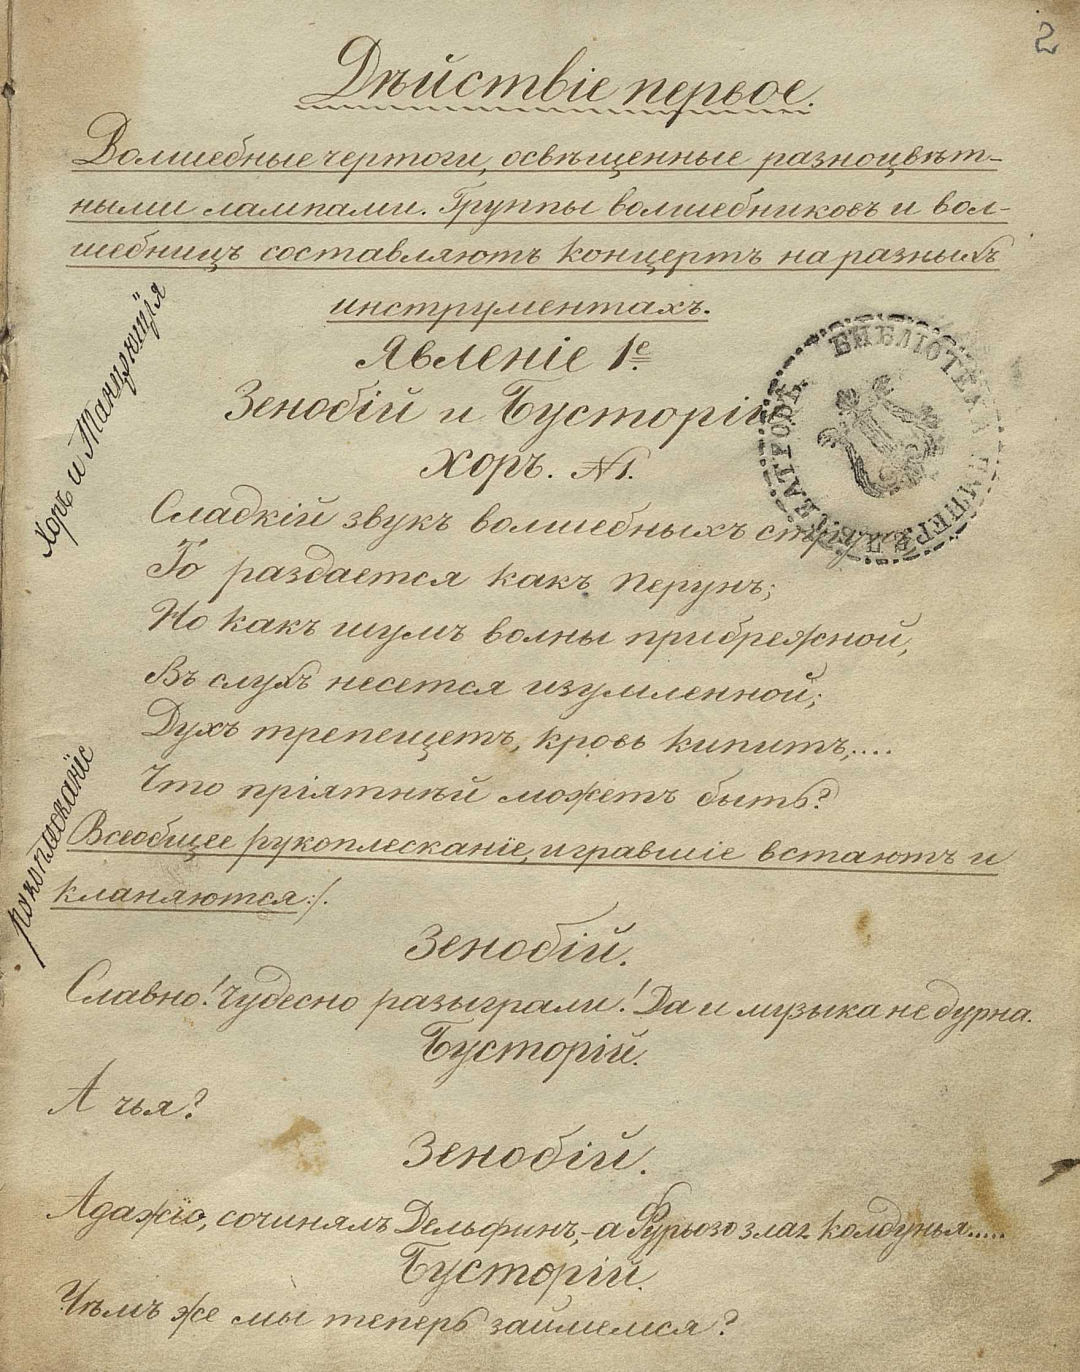 2
Дѣйствіе первое.
Волшебные чертоги, освѣщенные разноцвѣт-
ными лампами. Группы волшебниковъ и вол-
шебницъ составляютъ концертъ на разныхъ
инструментахъ.
Явленіе 1е.
Зенобій и Бусторій
Хоръ. №1.
Хоръ и
Сладкій звукъ волшебныхъ
То раздается какъ Перунъ;
Но какъ шумъ волны прибрежной,
Въ слухъ несется изумленной;
Духъ трепещетъ, кровь кипитъ,....
Что пріятнѣй можетъ быть?
рукоплесканіе
Всеобщее рукоплесканіе, игравшіе встаютъ и
кланяются:/.
Зенобій.
Славно! Чудесно разыграли! Да и музыка не дурна.
Бусторій.
А чья?
Зенобій.
Адажіо, сочинялъ Дельфинъ,- а Фурьозо злая колдунья.....
Бусторій.
Чѣмъ же мы теперь займемся?
БИБЛІОТЕКА ИМПЕР. ТЕАТРОВЪ.